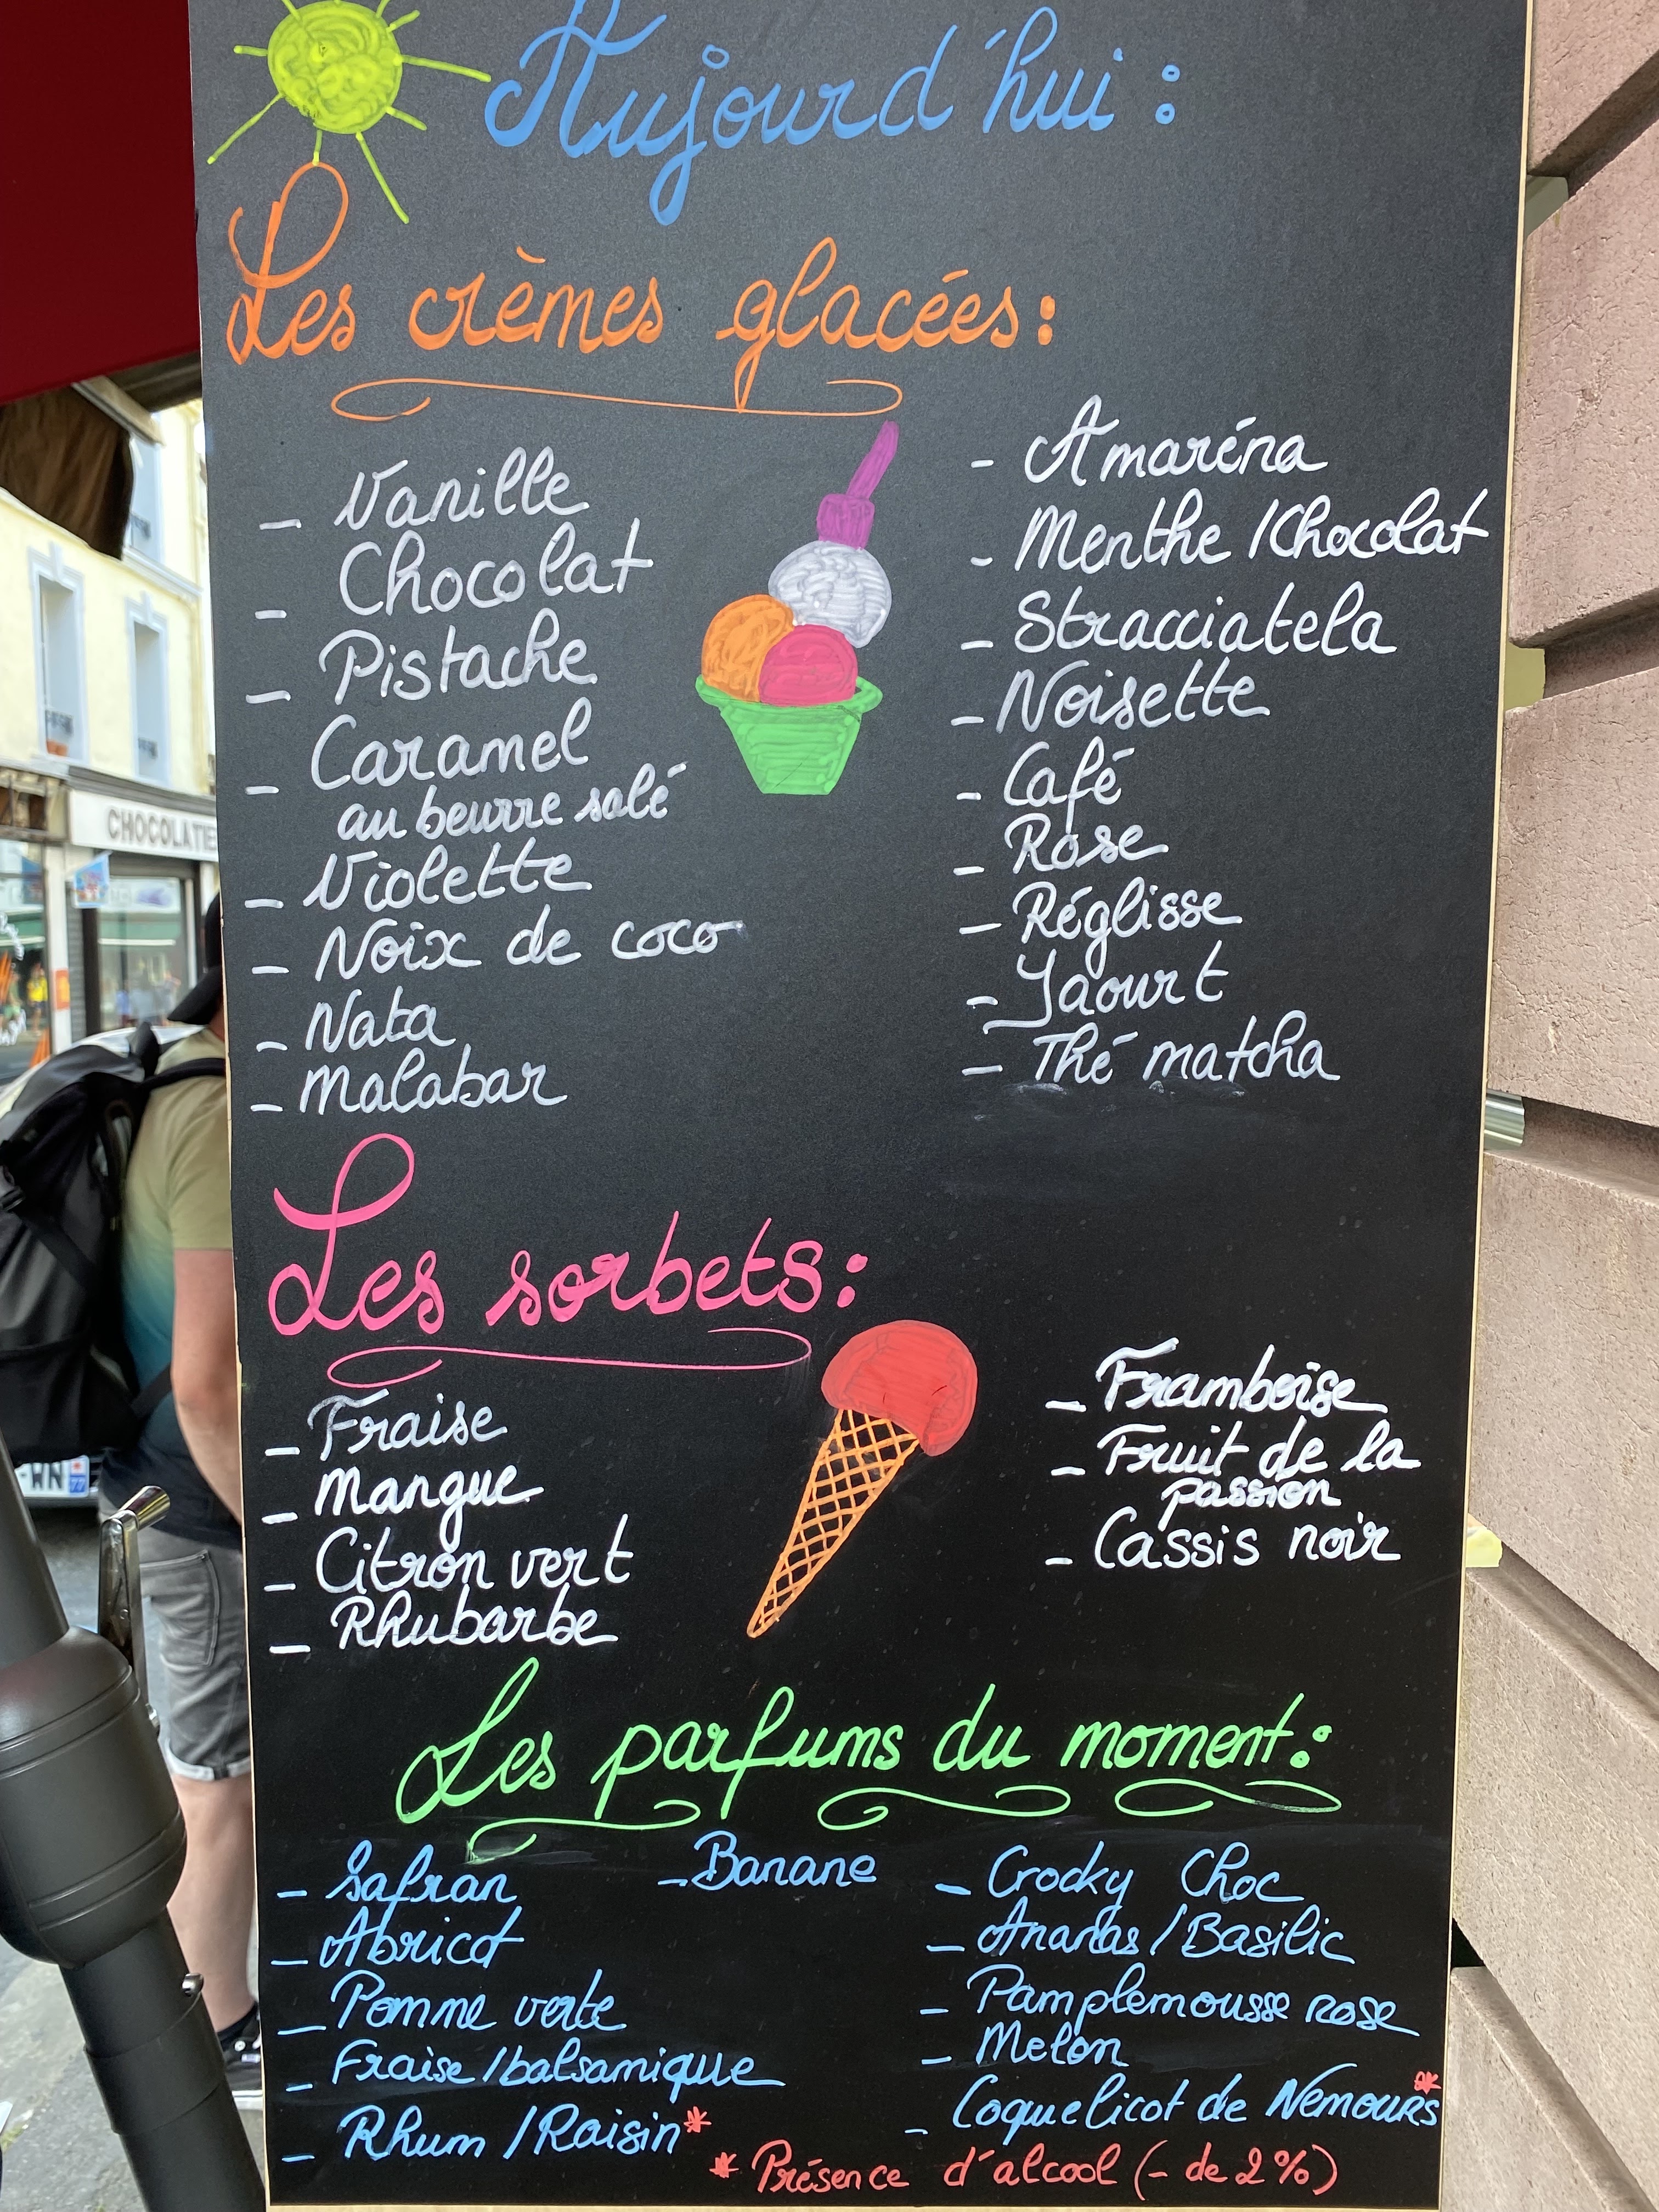 Aujourd'hui :
Les crèmes glacées :
- Vanille
- Chocolat
- Pistache
- Caramel
au beurre salé
- Violette
- Noix de coco
- Nata
- Malabar
- Amaréna
- Menthe / Chocolat
- Stracciatela
- Noisette
- Café
- Rose
- Réglisse
- Yaourt
- Thé matcha
Les sorbets :
- Fraise
- Mangue
- Citron vert
- Rhubarbe
- Framboise
- Fruit de la
passion
- Cassis noir
Les parfums du moment :
- Safran
- Abricot
- Pomme verte
- Fraise / balsamique
- Rhum / Raisin*
- Banane
- Crocky Choc
- Ananas / Basilic
- Pamplemousse rose
- Melon
- Coquelicot de Nemours*
* Présence d'alcool (- de 2%)
CHOCOLATIE
WN
77